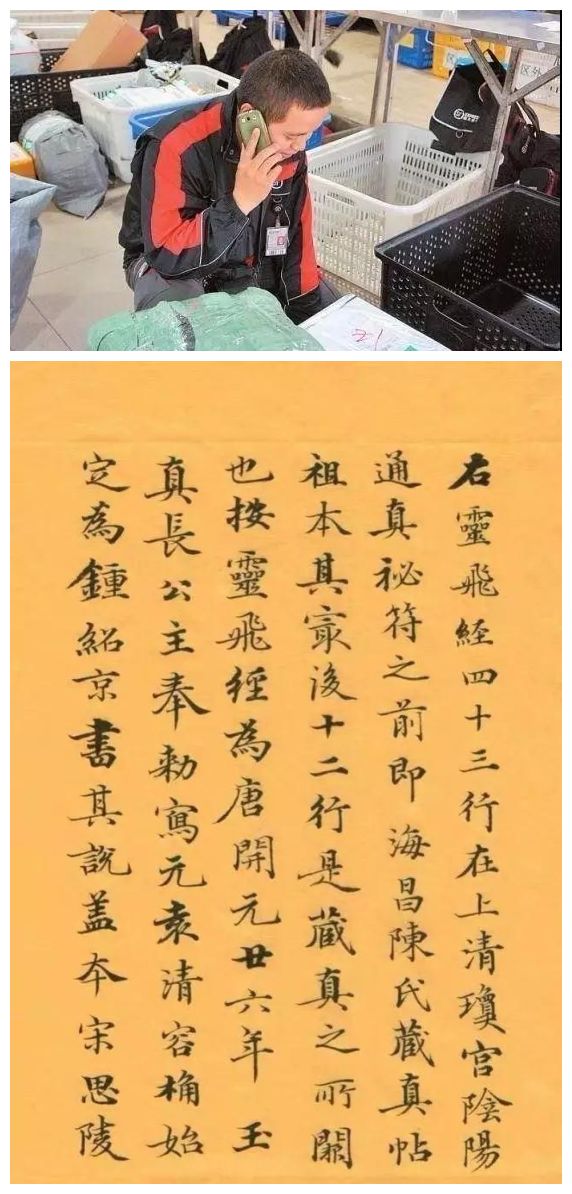 区外
右靈飛經四十三行在上清瓊宮陰陽
通真祕符之前即海昌陳氏藏真帖
祖本其寂後十二行是藏真之所闕
也按靈飛經為唐開元廿六年玉
真長公主奉勅寫元袁清容桷始
定為鍾紹京書其說蓋本宋思陵